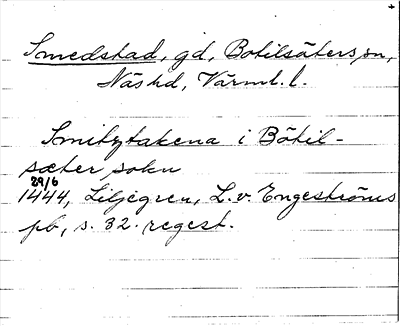 Smedstad, gd, Botilsäters sn,
Näs hd, Värml. l.
Smitztakena i Bötil-
sæter sokn
29/6
1444, Liljegren, L. v. Engeströms
pb, s. 32. regest.